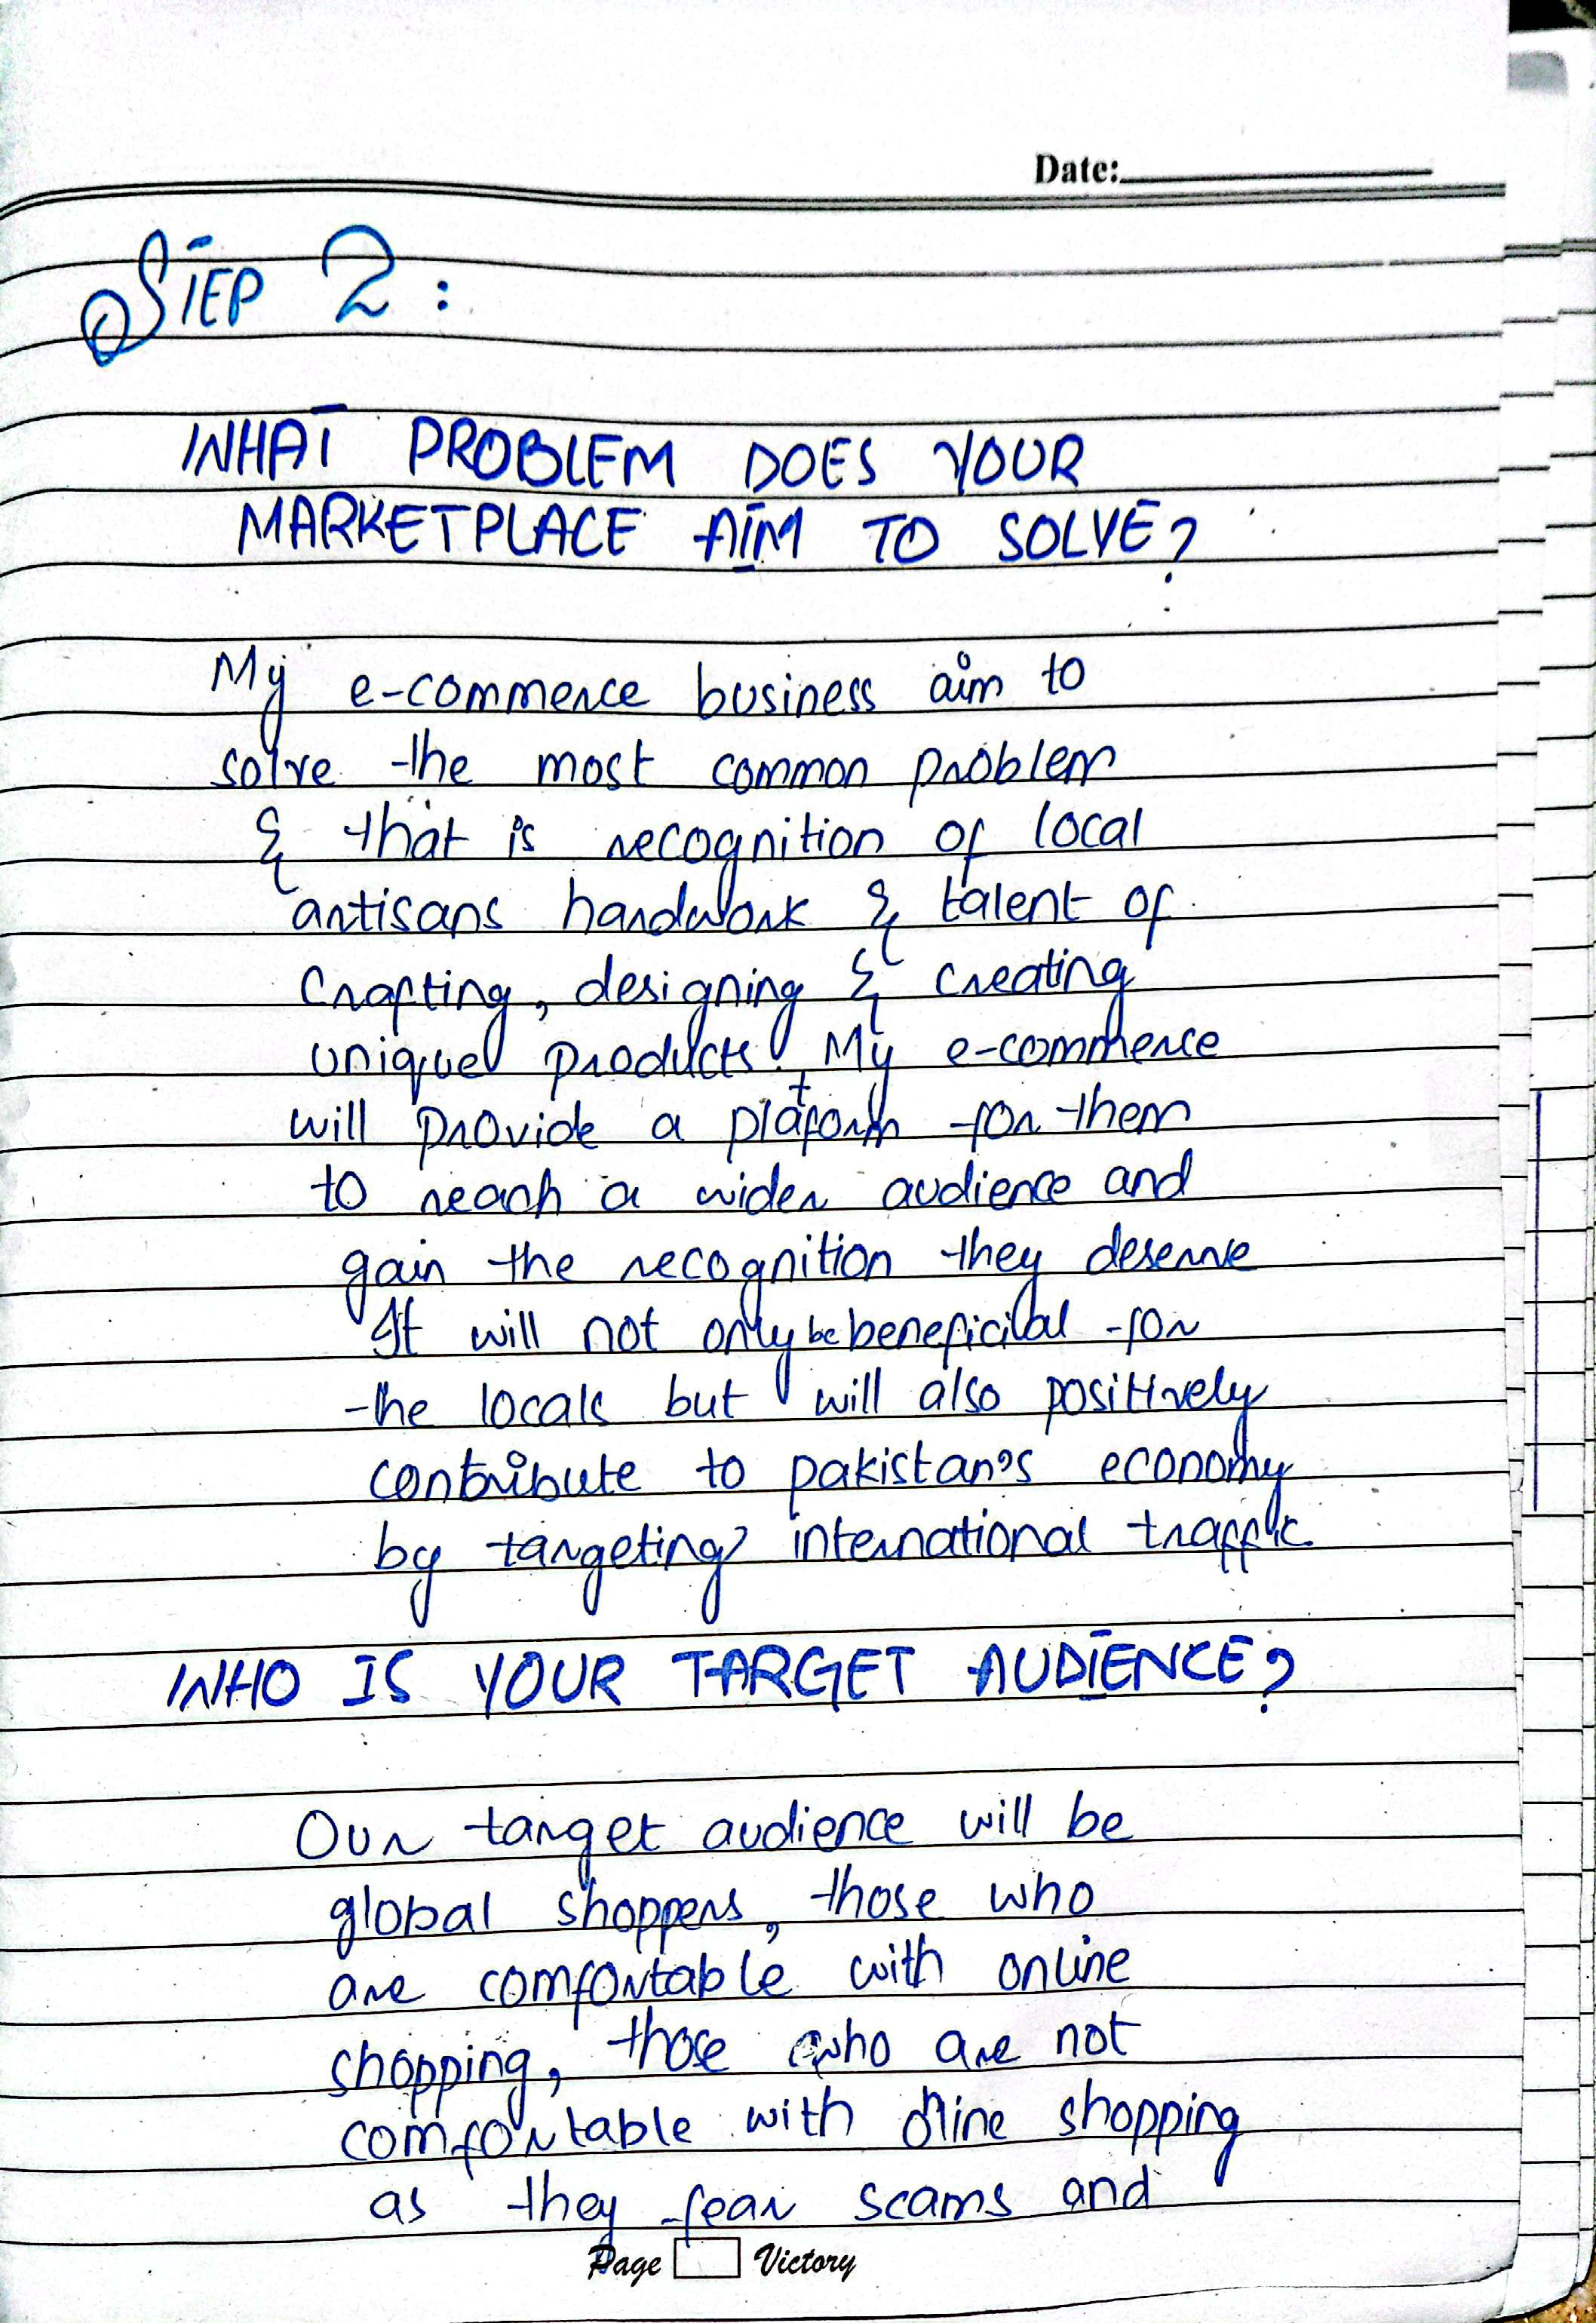 Date:
STEP 2:
WHAT PROBLEM DOES YOUR
MARKETPLACE AIM TO SOLVE?
My e-commerce business aim to
solve the most common problem
& that is recognition of local
artisans hardwork & talent of
Crafting, designing & creating
unique products. My e-commerce
will provide a platform for them
to reach a wider audience and
gain the recognition they deserve
It will not only be beneficial for
the locals but will also positively
contribute to pakistan's economy
by targeting international traffic
WHO IS YOUR TARGET AUDIENCE?
Our target audience will be
global shoppers, those who
are comfortable with online
shopping, those who are not
comfortable with online shopping
as they fear scams and
Page Victory